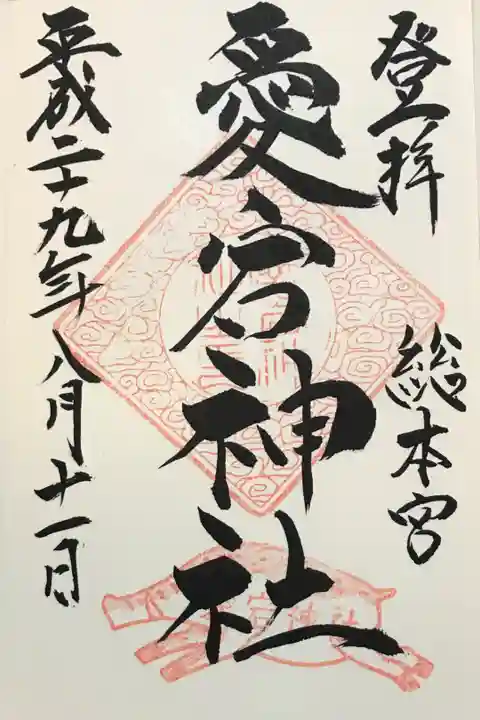 登拝
総本宮
愛宕神社
平成二十九年八月十一日
宕神社